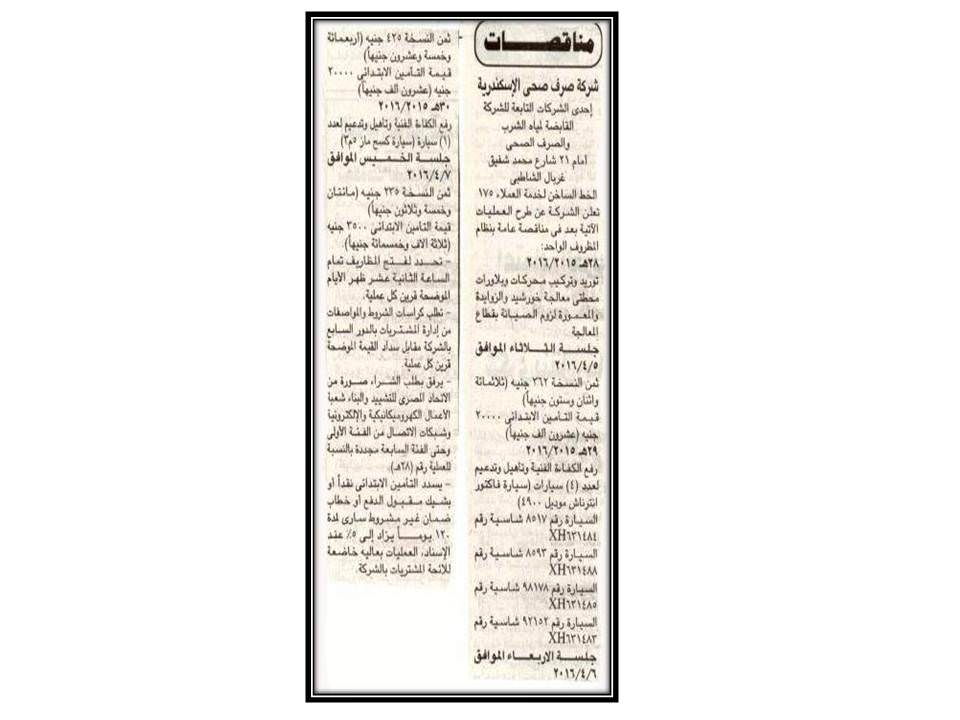 مناقصات
شركة صرف صحى الإسكندرية
إحدى الشركات التابعة للشركة
القابضة لمياه الشرب
والصرف الصحى
أمام ٢١ شارع محمد شفيق
غربال الشاطبى
الخط الساخن لخدمة العملاء ١٧٥
تعلن الشركة عن طرح العمليات
الآتية بعد فى مناقصة عامة بنظام
المظروف الواحد:
٢٨هـ ٢٠١٦/٢٠١٥
توريد وتركيب محركات وبلاورات
محطتى معالجة خورشيد والزوايدة
والمعمورة لزوم الصيانة بقطاع
المعالجة
جلسة الثلاثاء الموافق
٢٠١٦/٤/٥
ثمن النسخة ٣٦٢ جنيه (ثلاثمائة
واثنان وستون جنيهاً)
قيمة التأمين الابتدائى ٢٠٠٠٠
جنيه (عشرون ألف جنيهاً)
٢٩هـ ٢٠١٦/٢٠١٥
رفع الكفاءة الفنية وتاهيل وتدعيم
لعدد (٤) سيارات (سيارة فاكتور
انترناش موديل ٤٩٠٠)
السيارة رقم ٨٥١٧ شاسية رقم
XH٦٣١٤٨٤
السيارة رقم ٨٥٩٣ شاسية رقم
XH٦٣١٤٨٨
السيارة رقم ٩٨١٧٨ شاسية رقم
XH٦٣١٤٨٥
السيارة رقم ٩٢١٥٢ شاسية رقم
XH٦٣١٤٨٣
جلسة الاربعاء الموافق
٢٠١٦/٤/٦
ثمن النسخة ٤٢٥ جنيه (أربعمائة
وخمسة وعشرون جنيهاً)
قيمة التأمين الابتدائى ٢٠٠٠٠
جنيه (عشرون ألف جنيهاً)
٣٠هـ ٢٠١٦/٢٠١٥
رفع الكفاءة الفنية وتاهيل وتدعيم لعدد
(١) سيارة (سيارة كسح ماز ٥م٣)
جلسة الخميس الموافق
٢٠١٦/٤/٧
ثمن النسخة ٢٣٥ جنيه (مائتان
وخمسة وثلاثون جنيهاً)
قيمة التأمين الابتدائى ٣٥٠٠ جنيه
(ثلاثة الاف وخمسمائة جنيهاً).
– تحدد لفتح المظاريف تمام
الساعة الثانية عشر ظهر الأيام
الموضحة قرين كل عملية.
– تطلب كراسات الشروط والمواصفات
من إدارة المشتريات بالدور السابع
بالشركة مقابل سداد القيمة الموضحة
قرين كل عملية.
– يرفق بطلب الشراء، صورة من
الاتحاد المصرى للتشييد والبناء شعبة
الأعمال الكهروميكانيكية والإلكترونية
وشبكات الاتصال من الفئة الأولى
وحتى الفئة السابعة مجددة بالنسبة
للعملية رقم (٢٨هـ).
– يسدد التأمين الابتدائى نقداً أو
بشيك مقبول الدفع أو خطاب
ضمان غير مشروط سارى لمدة
١٢٠ يوماً يزاد إلى ٥٪ عند
الإسناد، العمليات بعاليه خاضعة
للائحة المشتريات بالشركة.